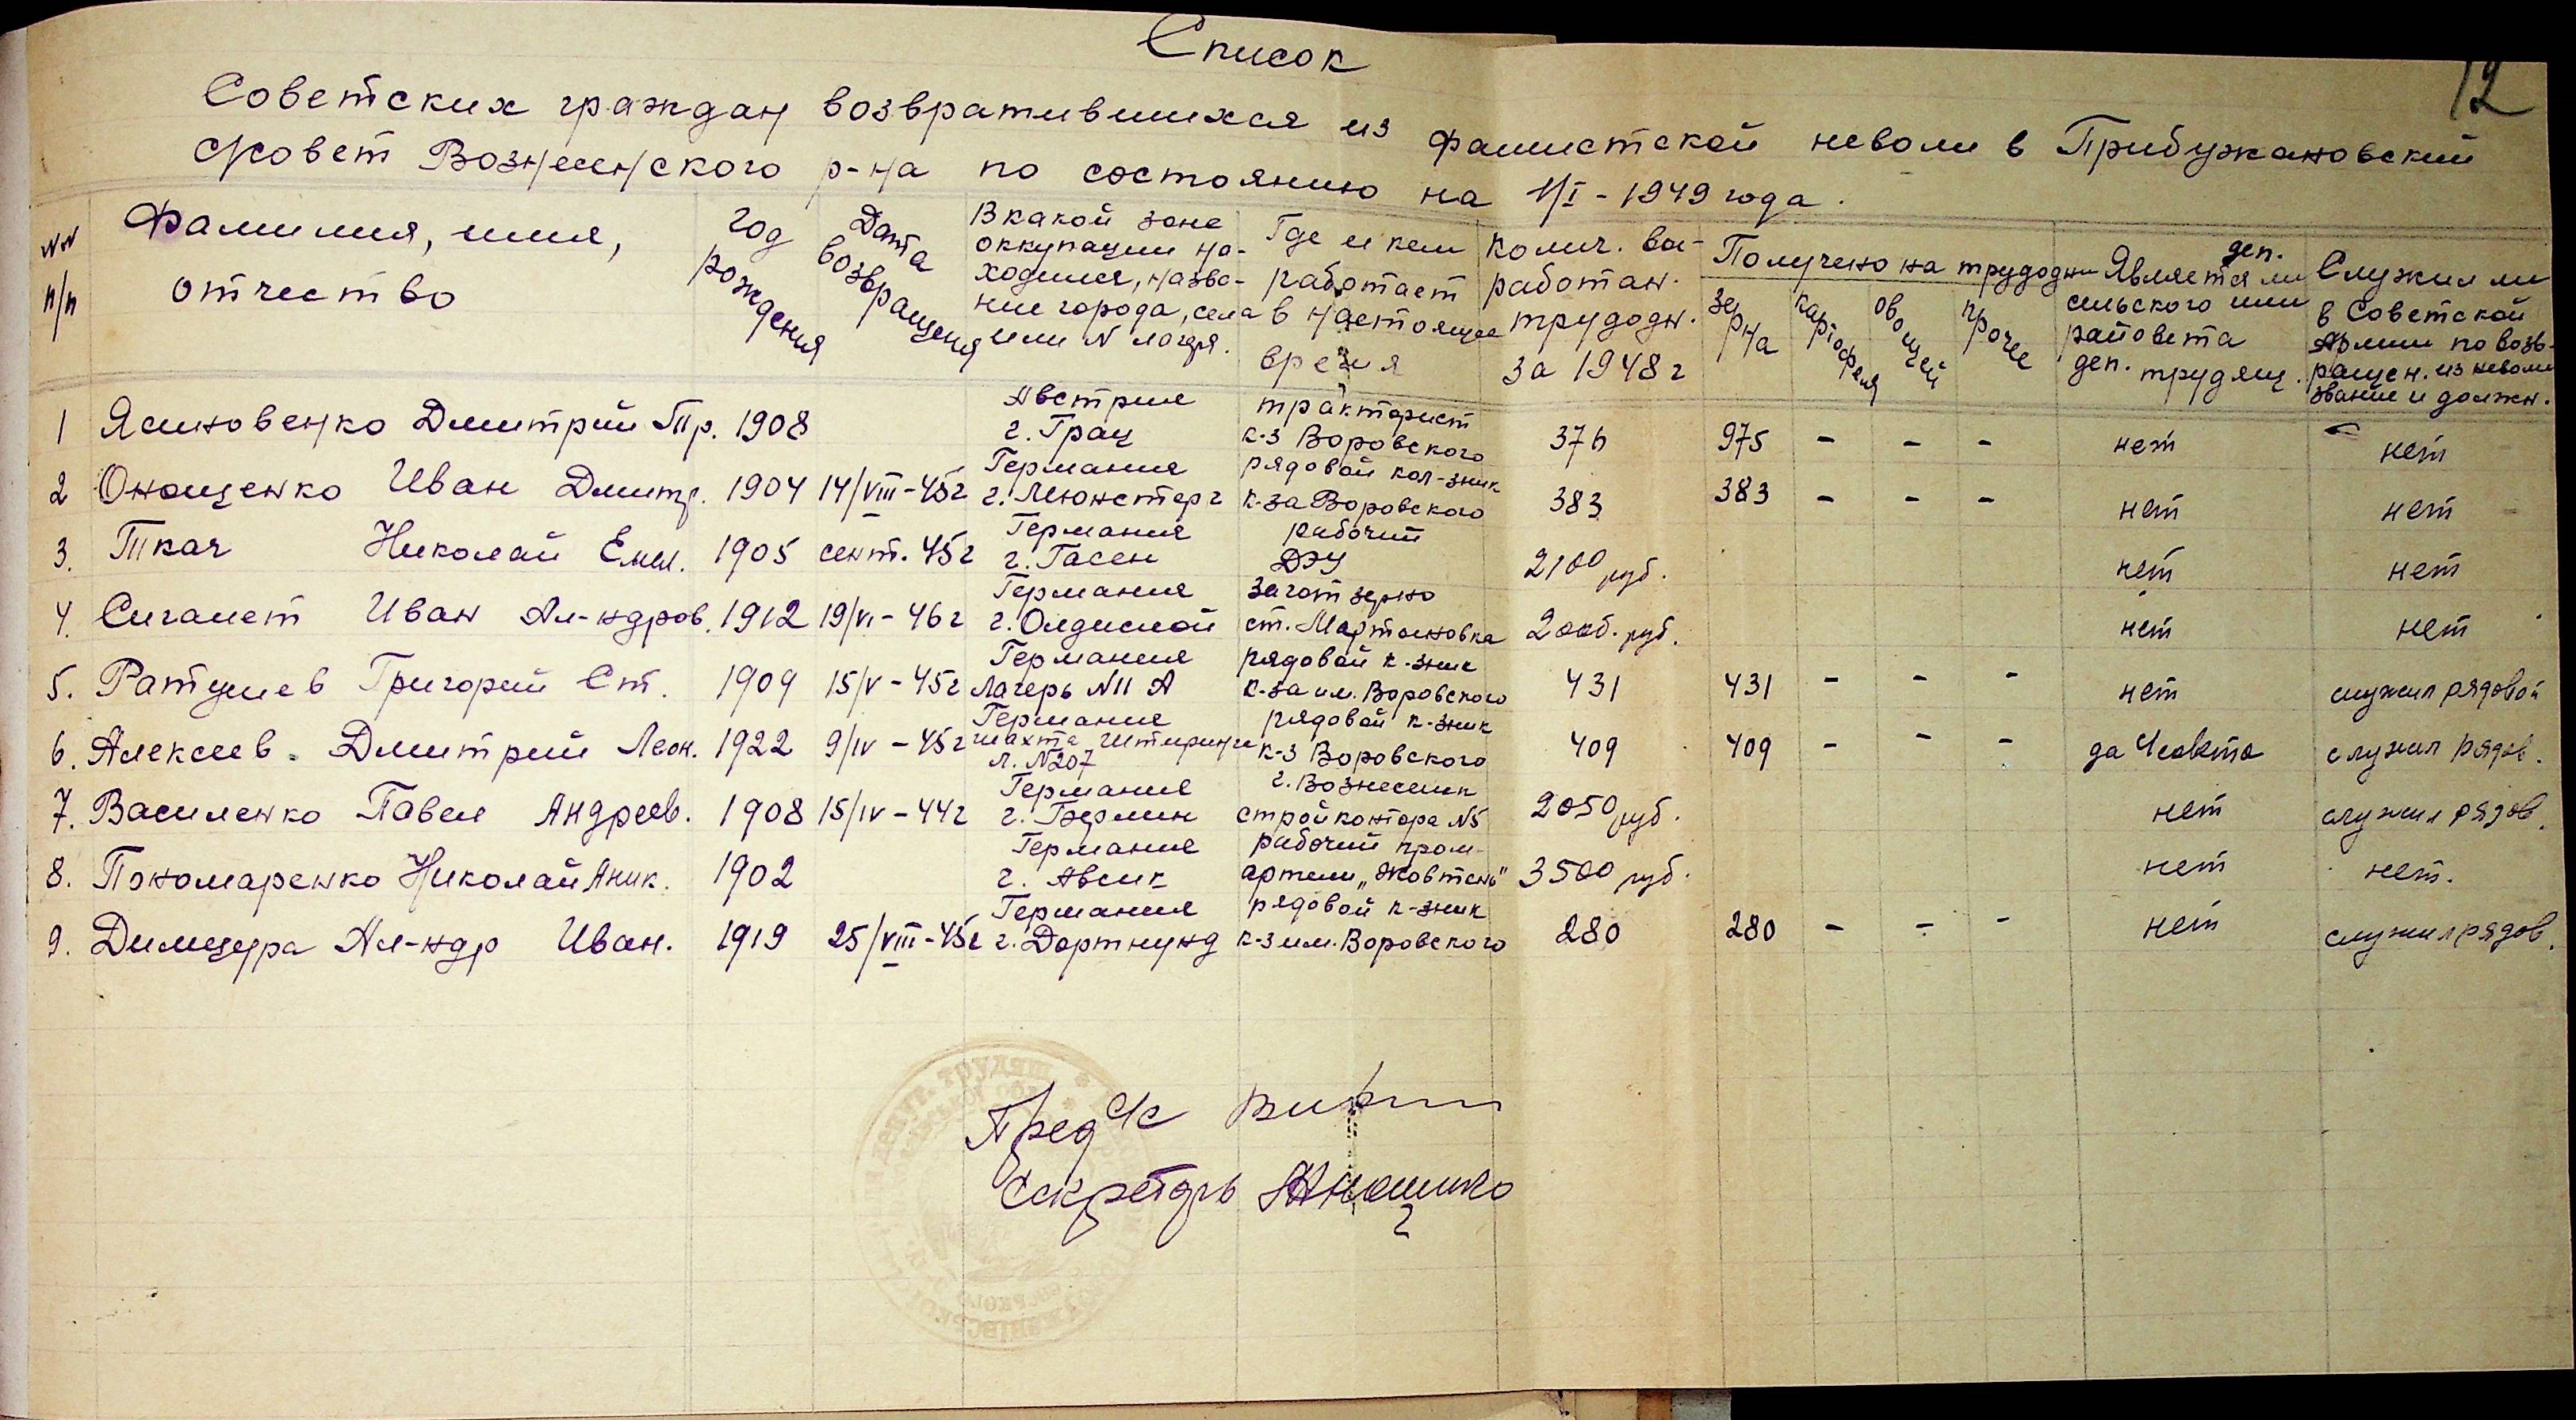 12
Список
Советских граждан возвратившихся из фашистской неволи в Прибужановский
с/совет Вознесенского р-на по состоянию на 1/I - 1949 года.
NN п/п
Фамилия, имя, отчество
Год рождения
Дата возвращения
В какой зоне оккупации находился, название города, села или N лагеря.
Где и кем работает в настоящее время
Колич. выработан. трудодн. за 1948 г
Получено на трудодни
зерна
картофеля
овощей
прочее
Является ли деп. сельского или райсовета деп. трудящ.
Служил ли в Советской Армии по возвращен. из неволи звание и должн.
1 Ясиновенко Дмитрий Пр. 1908 Австрия г. Грац тракторист к-з Воровского 376 975 - - - нет нет
2 Онощенко Иван Дмитр. 1904 14/VIII-45г Германия г. Мюнстерг рядовой кол-зник к-за Воровского 383 383 - - - нет нет
3. Ткач Николай Емел. 1905 сент. 45г Германия г. Гасен рабочий ДЭУ 2100 руб. нет нет
4. Сигалет Иван Ал-ндров. 1912 19/VI-46г Германия г. Олдислой заготзерно ст. Мартыновка руб. нет нет
5. Ратушев Григорий Ст. 1909 15/V-45г Германия Лагерь N 11 А рядовой к-зник к-за им. Воровского 431 431 - - - нет служил рядовой
6. Алексеев Дмитрий Леон. 1922 9/IV-45г Германия шахта л. N207 рядовой к-зник к-з Воровского 409 409 - - - да служил рядов.
7. Василенко Павел Андреев. 1908 15/IV-44г Германия г. Берлин г. Вознесенск стройконтора N5 2050 руб. нет служил рядов.
8. Пономаренко Николай Аник. 1902 Германия г. Авсик рабочий пром-артели „Жовтень" 3500 руб. нет нет.
9. Димцура Ал-ндр Иван. 1919 25/VIII-45г Германия г. Дортнунд рядовой к-зник к-з им. Воровского 280 280 - - - нет служил рядов.
Пред с/с
Секретарь